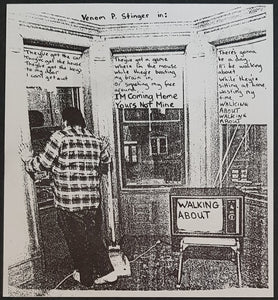 Venom P. Stinger in:
They've got the car
got the house
got the
to my door
I can't get out
They've got a game
Where I'm the mouse
While they're beating
my brain in,
Or my
around
I'M COMING HOME
Yours Not Mine
There's gonna
a day
I'll be walking
about
While they're
sitting at home
wasting my
time
WALKING
ABOUT
WALKING
ABOUT
WALKING
ABOUT